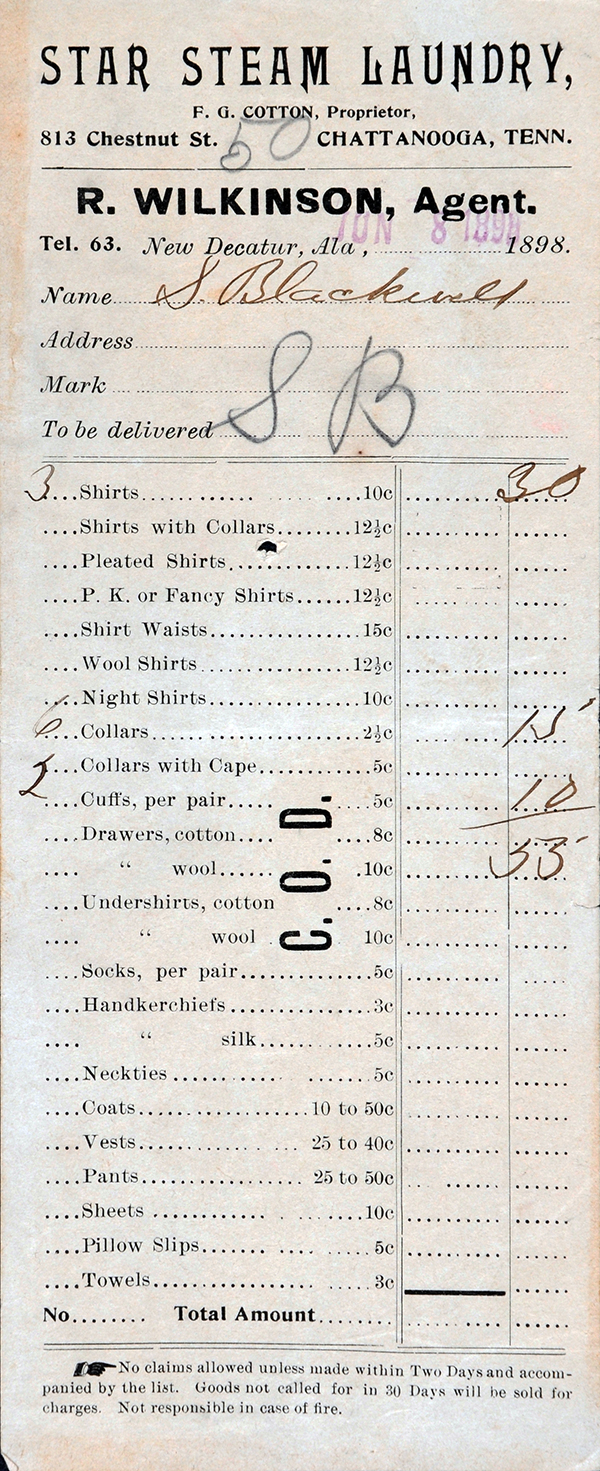 STAR STEAM LAUNDRY,
F. G. COTTON, Proprietor,
813 Chestnut St. 50 CHATTANOOGA, TENN.
R. WILKINSON, Agent.
JUN 8 1898
Tel. 63. New Decatur, Ala , ........ 1898.
Name.... S. Blackwell
Address....
Mark ....
S B
To be delivered....
3...Shirts.... 10c 30
....Shirts with Collars....12½c
....Pleated Shirts....12½c
....P. K. or Fancy Shirts......12½c
....Shirt Waists....15c
....Wool Shirts....12½c
....Night Shirts....10c
6...Collars....2½c 15
....Collars with Cape....5c
2....Cuffs, per pair.... 5c 10
....Drawers, cotton.... 8c 55
.... “ wool.... .10c
....Undershirts, cotton ....8c
.... “ wool 10c
C. O. D.
....Socks, per pair....5c
....Handkerchiefs....3c
.... “ silk....5c
....Neckties....5c
....Coats....10 to 50c
....Vests.... 25 to 40c
....Pants.... 25 to 50c
....Sheets ....10c
....Pillow Slips.... 5c
....Towels.... 3c
No........ Total Amount........
☛No claims allowed unless made within Two Days and accom-
panied by the list. Goods not called for in 30 Days will be sold for
charges. Not responsible in case of fire.